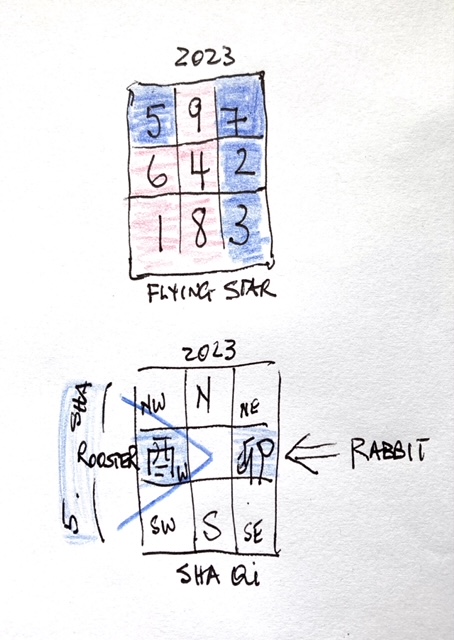 2023
5 9 7
6 4 2
1 8 3
FLYING STAR
2023
NW N NE
S. SHA
ROOSTER 酉 W 卯 RABBIT
SW S SE
SHA Qi